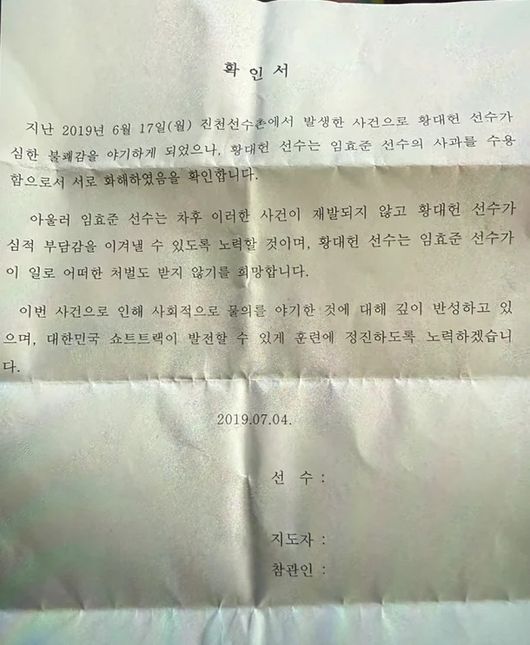 확 인 서
지난 2019년 6월 17일(월) 진천선수촌에서 발생한 사건으로 황대헌 선수가
심한 불쾌감을 야기하게 되었으나, 황대헌 선수는 임효준 선수의 사과를 수용
함으로서 서로 화해하였음을 확인합니다.
아울러 임효준 선수는 차후 이러한 사건이 재발되지 않고 황대헌 선수가
심적 부담감을 이겨낼 수 있도록 노력할 것이며, 황대헌 선수는 임효준 선수가
이 일로 어떠한 처벌도 받지 않기를 희망합니다.
이번 사건으로 인해 사회적으로 물의를 야기한 것에 대해 깊이 반성하고 있
으며, 대한민국 쇼트트랙이 발전할 수 있게 훈련에 정진하도록 노력하겠습니
다.
2019.07.04.
선 수 :
지도자 :
참관인 :